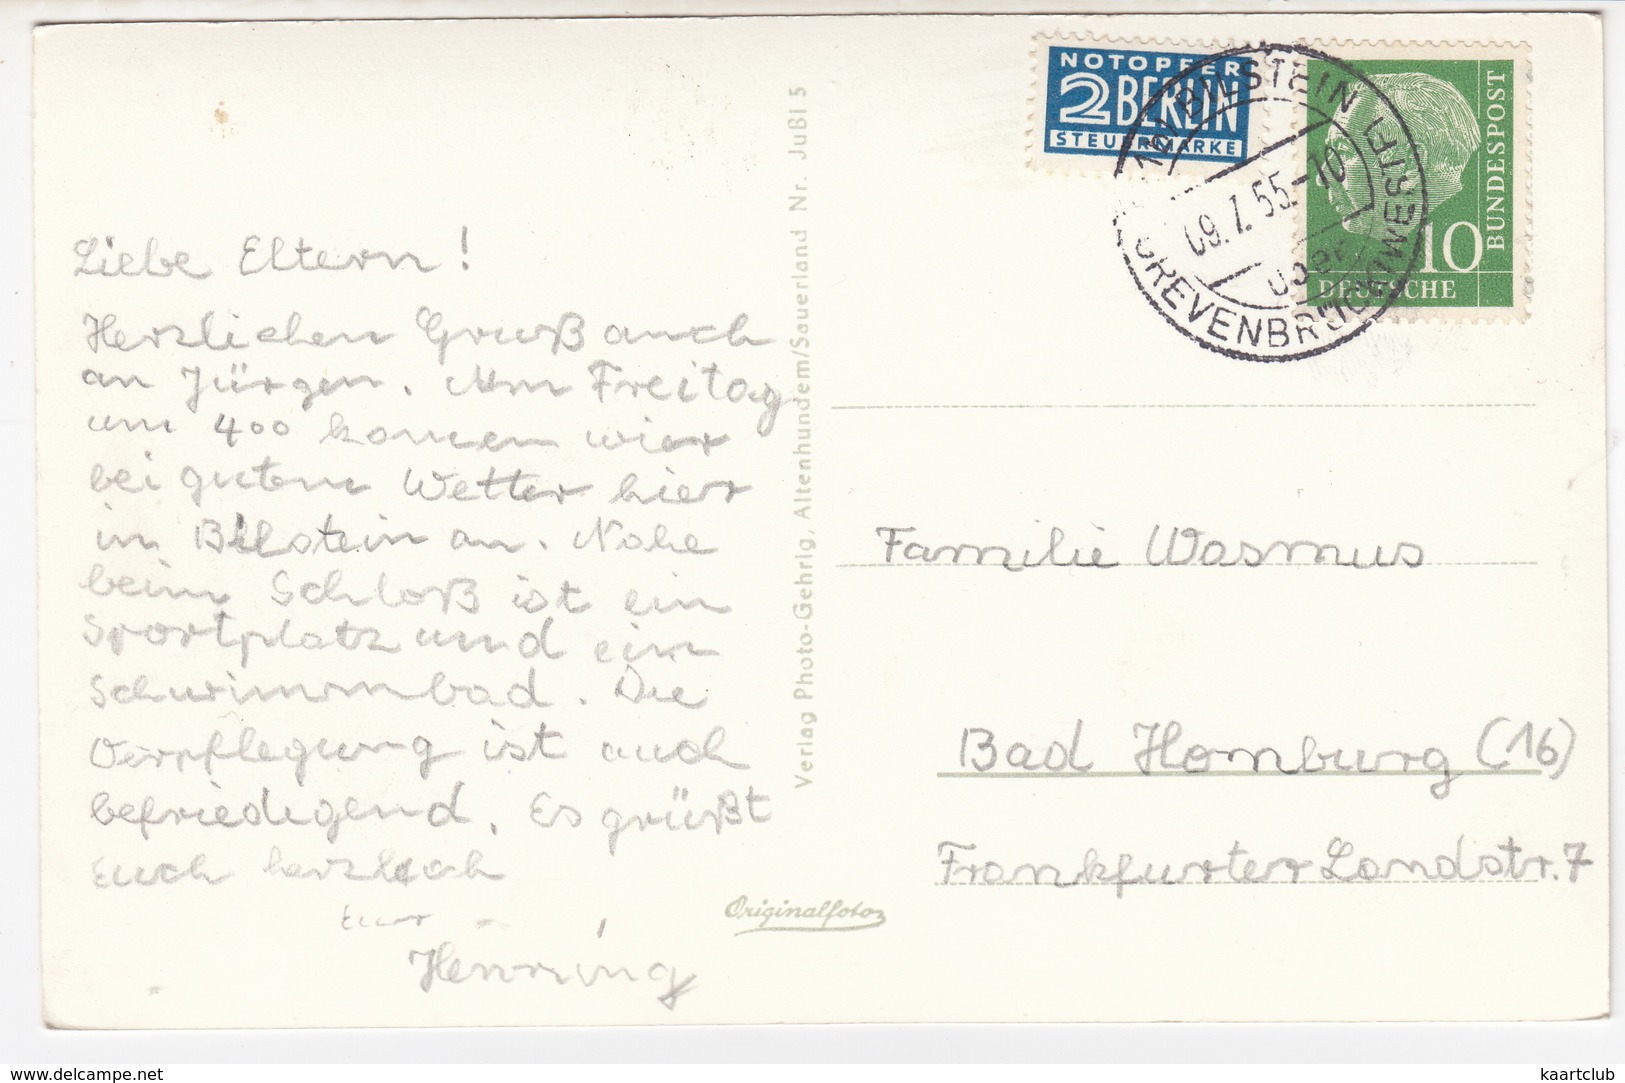 Liebe Eltern!
Herzlichen Gruß auch
an Jürgen. Am Freitag
um 400 kamen wier
bei gutem Wetter hier
in Bilstein an. Nahe
beim Schloß ist ein
Sportplatz und ein
Schwimmbad. Die
Verpflegung ist auch
befriedigend. Es grüßt
Euch herzlich
Euer
Henning
Verlag Photo-Gehrig, Altenhundem/Sauerland Nr. JuBi 5
Originalfoto
NOTOPFER
2 BERLIN
STEUERMARKE
BILSTEIN
ÜBER
GREVENBRÜCK (WESTF)
09.7.55.-10
10
DEUTSCHE
BUNDESPOST
Familie Wasmus
Bad Homburg (16)
Frankfurter Landstr. 7
www.delcampe.net
kaartclub